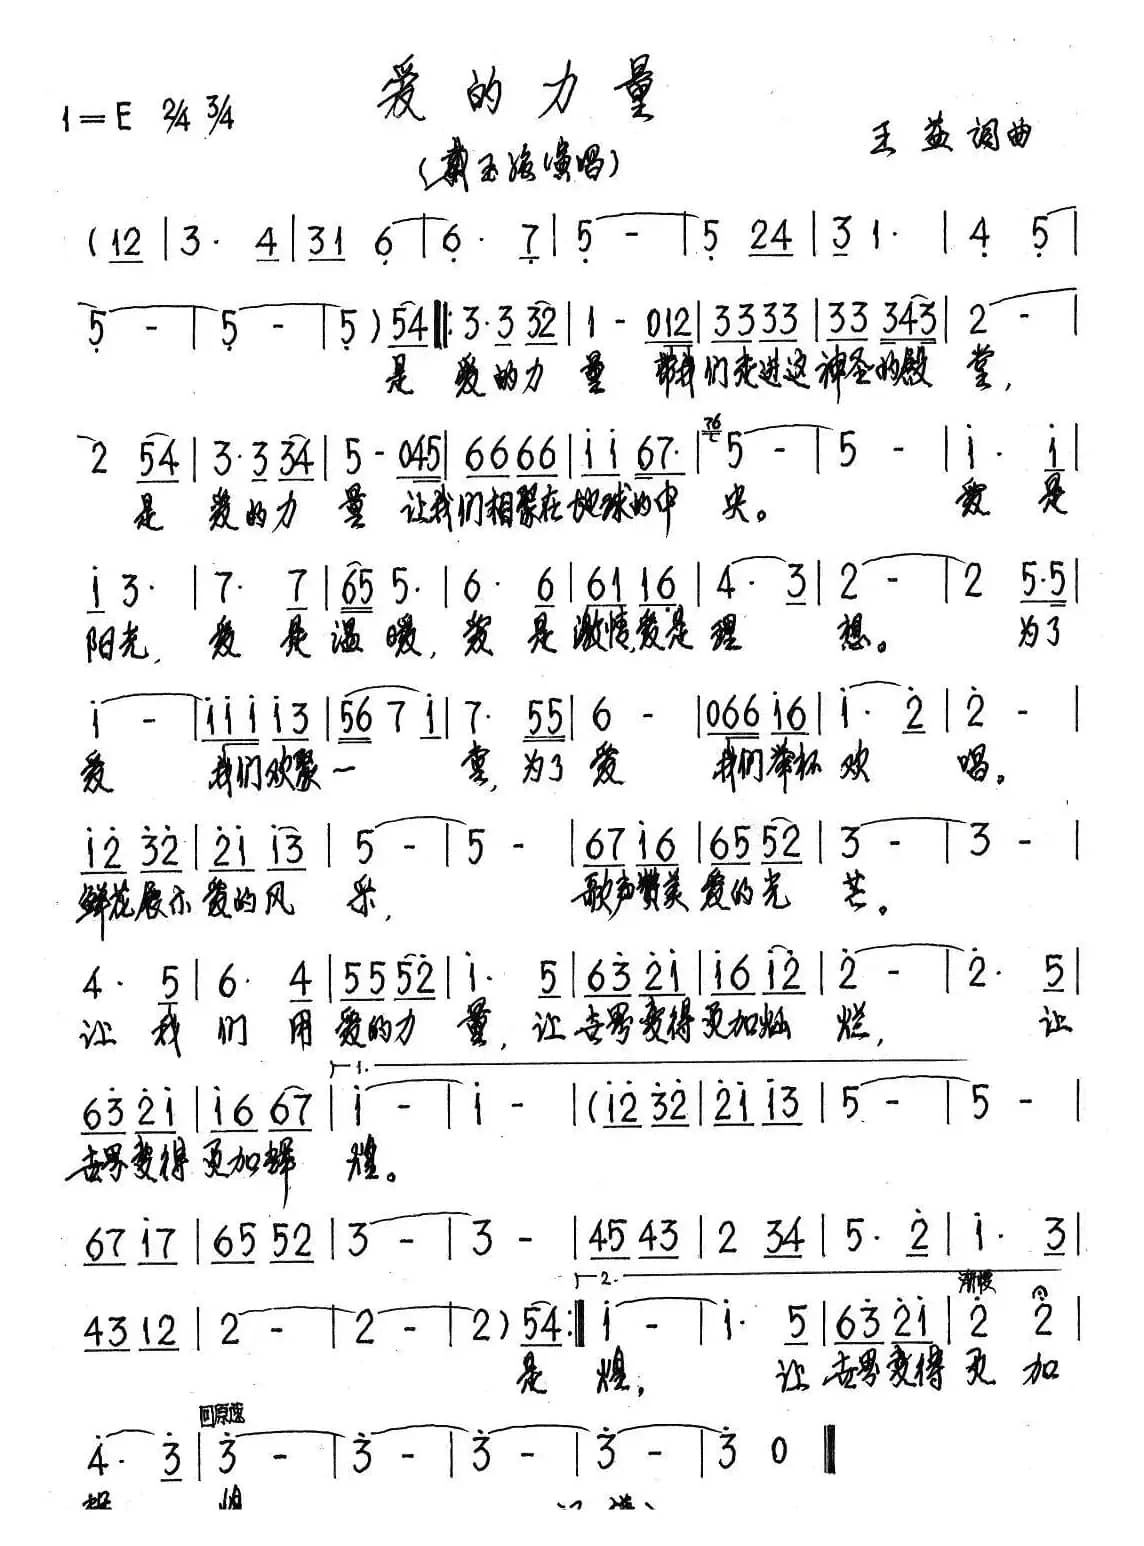 爱的力量
1=E 2/4 3/4
(戴玉强演唱)
王益词曲
(12 | 3· 4 | 31 6 | 6· 7 | 5 - | 5 24 | 3 1· | 4 5 |
5 - | 5 - | 5) 54 ‖: 3·3 32 | 1 - 012 | 33 33 | 33 343 | 2 - |
是 爱的力 量 带我们走进这神圣的殿 堂，
2 54 | 3·3 34 | 5 - 045 | 66 66 | i i 67· | 76 5 - | 5 - | i· i |
是 爱的力 量 让我们相聚在地球的中 央。 爱 是
i 3· | 7· 7 | 65 5· | 6· 6 | 61 16 | 4· 3 | 2 - | 2 5·5 |
阳光， 爱 是温 暖， 爱 是激情，爱是 理 想。 为了
i - | i i i i 3 | 56 7 i | 7· 55 | 6 - | 066 i6 | i· 2̇ | 2̇ - |
爱 我们欢聚一 堂，为了 爱 我们举杯 欢 唱。
i2̇ 3̇2̇ | 2̇i i3 | 5 - | 5 - | 67 i6 | 65 52̇ | 3 - | 3 - |
鲜花展示 爱的风 采， 歌声赞美 爱的光 芒。
4· 5 | 6· 4 | 55 52̇ | i· 5 | 63̇ 2̇i | i6 i2̇ | 2̇ - | 2̇· 5 |
让 我 们 用 爱的力 量，让 世界变得更加灿 烂， 让
1.
63̇ 2̇i | i6 67 | i - | i - | (i2̇ 3̇2̇ | 2̇i i3 | 5 - | 5 - |
世界变得 更加辉 煌。
67 i7 | 65 52 | 3 - | 3 - | 45 43 | 2 34 | 5· 2̇ | i· 3 |
2. 渐慢
43 12 | 2 - | 2 - | 2) 54 :‖ i - | i· 5 | 63̇ 2̇i | 2̇ 2̇ |
是 煌， 让 世界变得 更 加
回原速
4̇· 3̇ | 3̇ - | 3̇ - | 3̇ - | 3̇ - | 3̇ 0 ‖